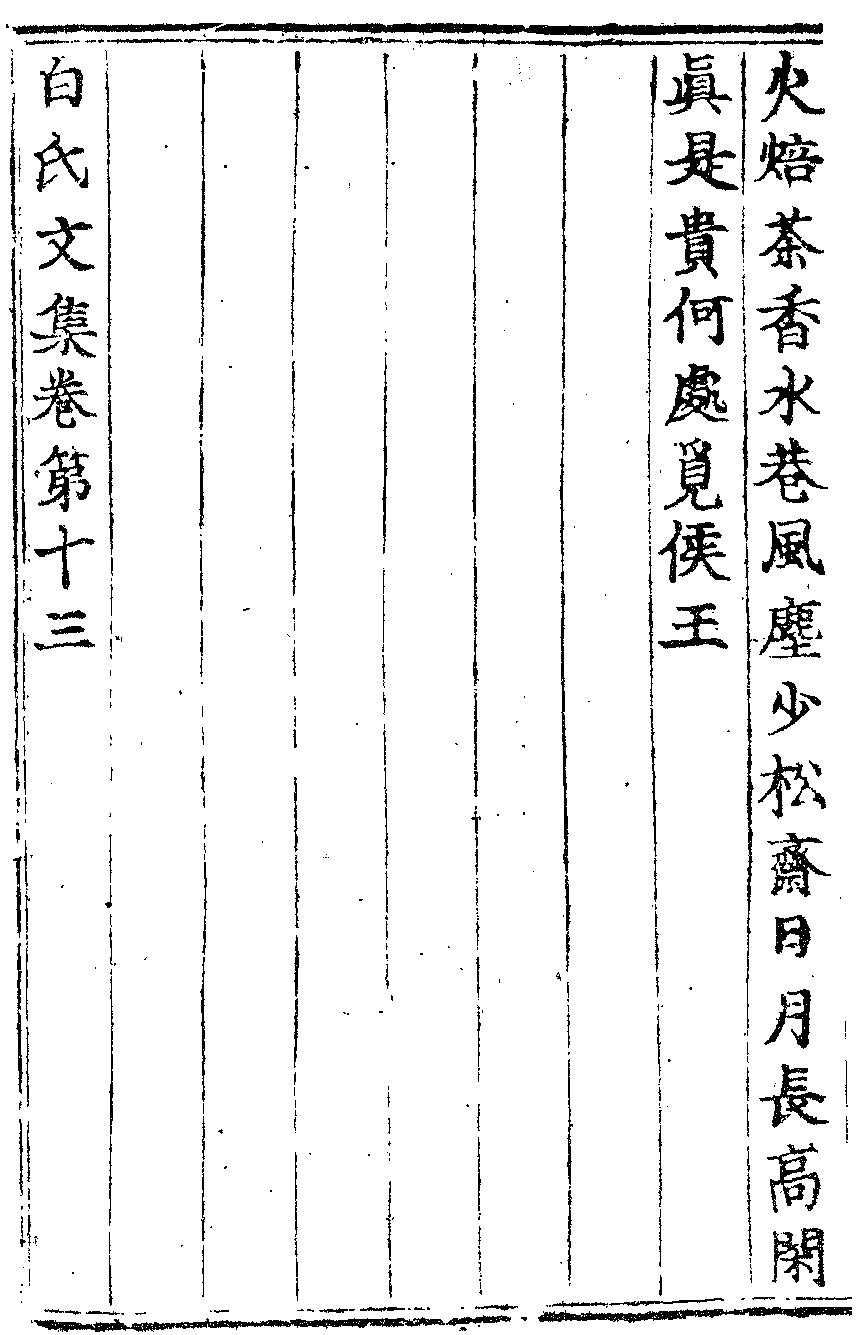 火焙茶香水巷風塵少松齋日月長高閑
眞是貴何處覓侯王
白氏文集卷第十三